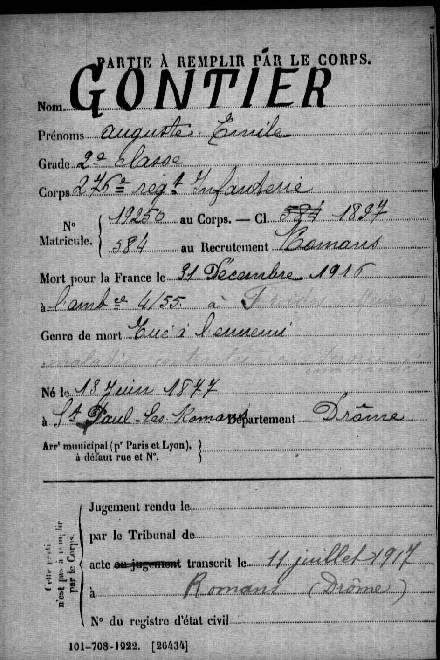 PARTIE À REMPLIR PAR LE CORPS.
Nom GONTIER
Prénoms Auguste Emile
Grade 2e classe
Corps 276e régt Infanterie
No Matricule. { 19250 au Corps. — Cl. 584 1897
584 au Recrutement Romans
Mort pour la France le 31 Décembre 1916
à l'ambce 4/55 à
Genre de mort Tué à l'ennemi
maladie
Né le 13 Juin 1877
à St Paul-les-Romans Département Drôme
Arrt municipal (pr Paris et Lyon), }
à défaut rue et No.
Cette partie n'est pas à remplir par le Corps.
Jugement rendu le
par le Tribunal de
acte ou jugement transcrit le 11 juillet 1917
à Romans (Drôme)
No du registre d'état civil
101-708-1922. [26434]